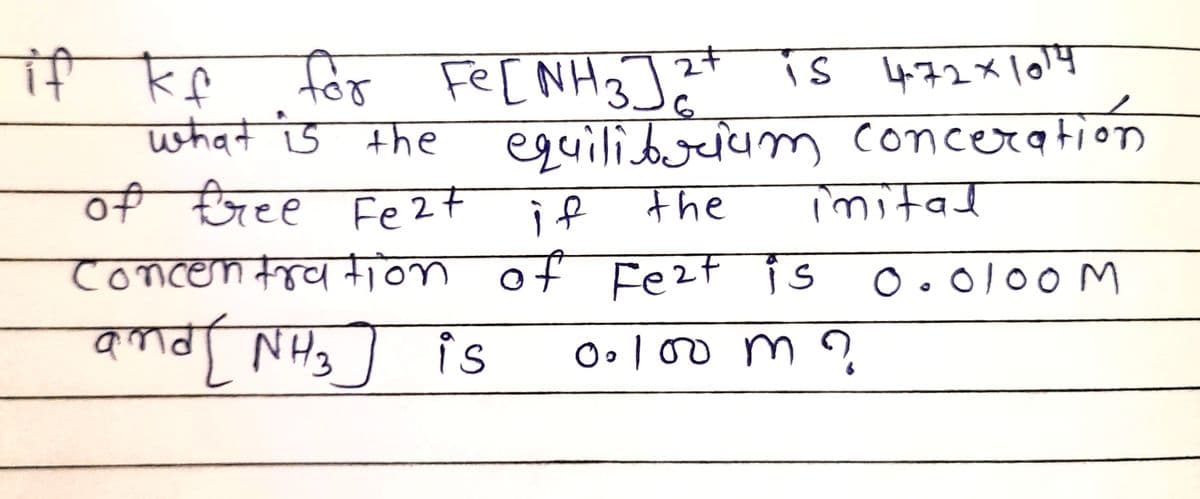 if kf for Fe[NH3]6 2+ is 4.72×10^14
what is the equilibrium conceration
of free Fe2+ if the inital
concentration of Fe2+ is 0.0100 M
and [NH3] is 0.100 m ?